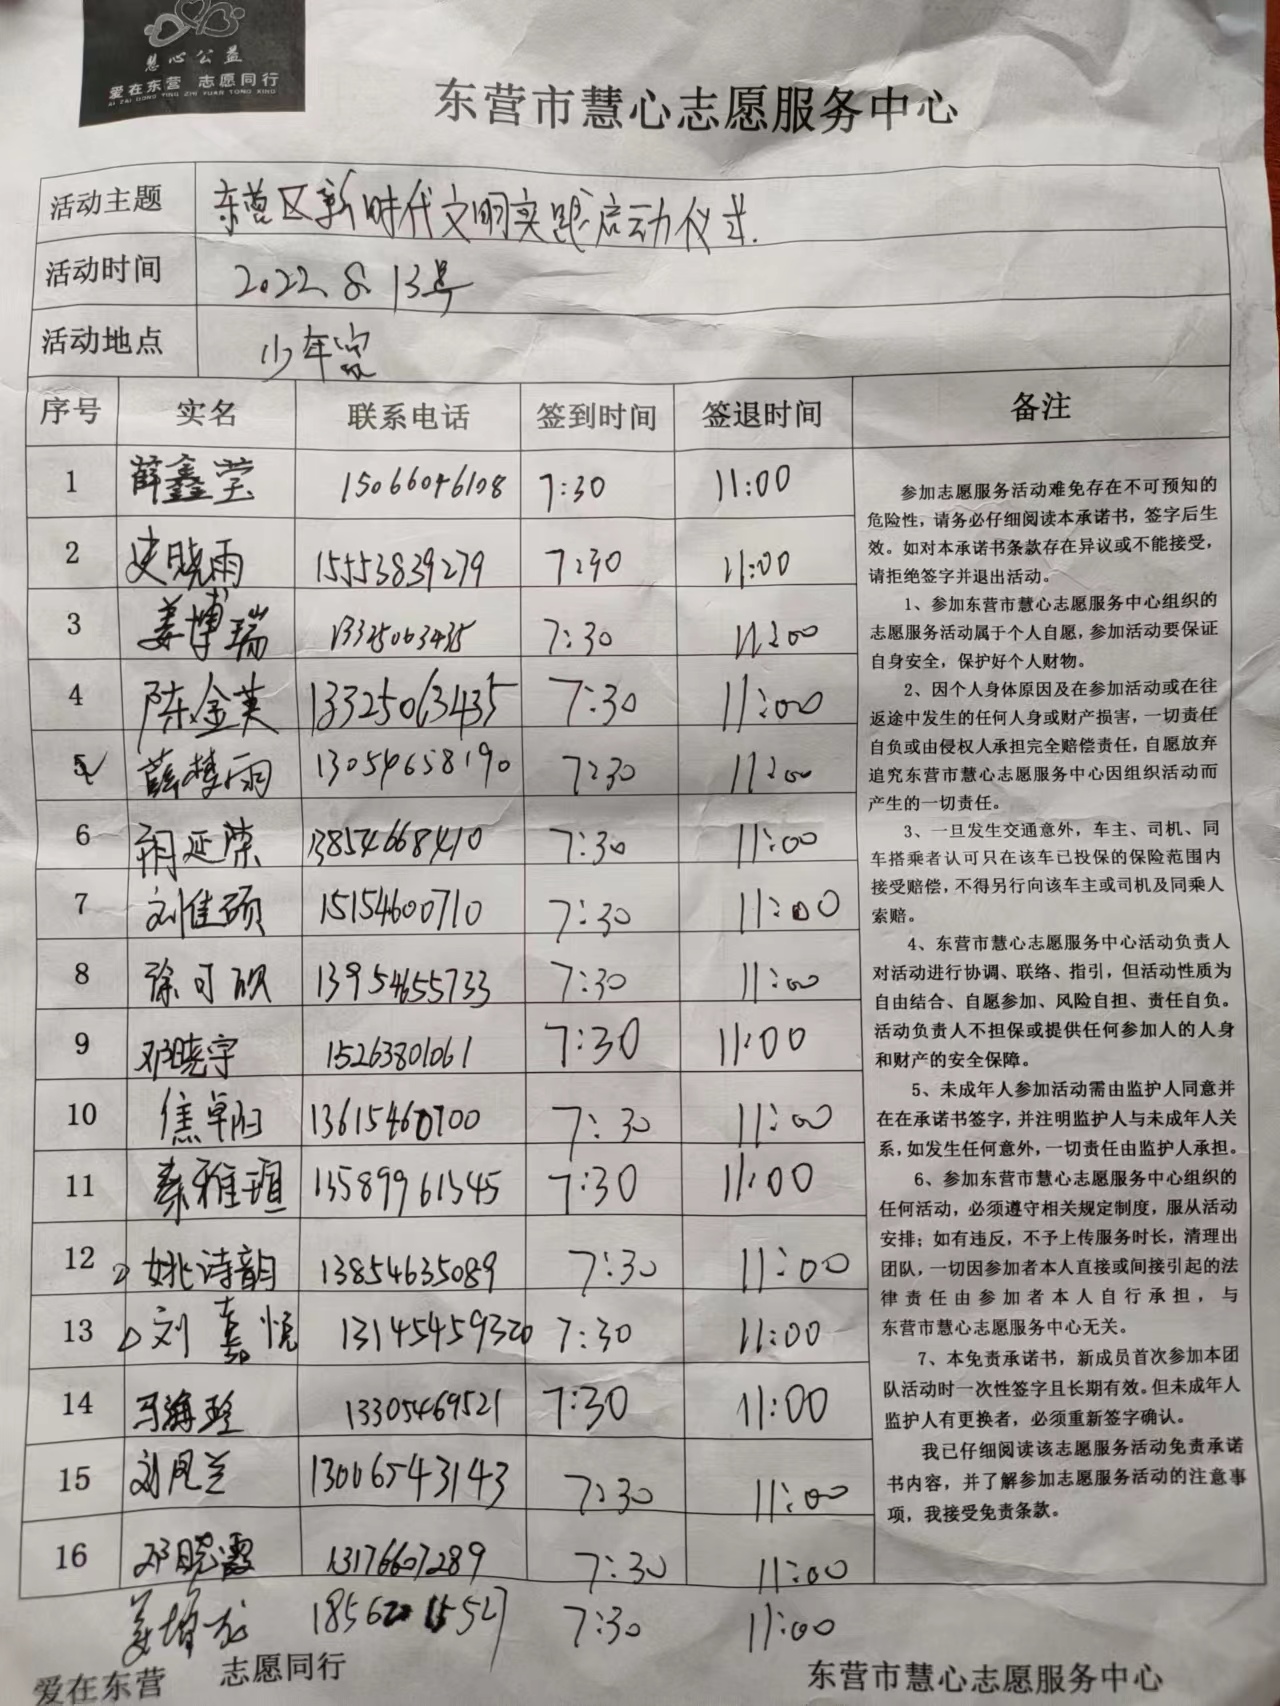 慧心公益
爱在东营 志愿同行
AI ZAI DONG YING ZHI YUAN TONG XING
东营市慧心志愿服务中心
活动主题 东营区新时代文明实践启动仪式.
活动时间 2022.8.13号
活动地点 少年宫
序号 实名 联系电话 签到时间 签退时间 备注
1 薛鑫莹 15066046108 7:30 11:00
2 史晓雨 15553839279 7:30 11:00
3 姜博瑞 13325063435 7:30 11:00
4 陈金英 13325063435 7:30 11:00
5 薛梦雨 13054658190 7:30 11:00
6 延荣 13854668410 7:30 11:00
7 刘佳硕 15154600710 7:30 11:00
8 徐可硕 13954655733 7:30 11:00
9 邓晓宇 15263801061 7:30 11:00
10 焦卓阳 13615460700 7:30 11:00
11 秦雅瑄 13589961545 7:30 11:00
12 姚诗韵 13854635089 7:30 11:00
13 刘嘉悦 13145459320 7:30 11:00
14 马海玲 13305469521 7:30 11:00
15 刘凤兰 13006543143 7:30 11:00
16 邓晓霞 13176607289 7:30 11:00
姜增龙 7:30 11:00
参加志愿服务活动难免存在不可预知的
危险性，请务必仔细阅读本承诺书，签字后生
效。如对本承诺书条款存在异议或不能接受，
请拒绝签字并退出活动。
1、参加东营市慧心志愿服务中心组织的
志愿服务活动属于个人自愿，参加活动要保证
自身安全，保护好个人财物。
2、因个人身体原因及在参加活动或在往
返途中发生的任何人身或财产损害，一切责任
自负或由侵权人承担完全赔偿责任，自愿放弃
追究东营市慧心志愿服务中心因组织活动而
产生的一切责任。
3、一旦发生交通意外，车主、司机、同
车搭乘者认可只在该车已投保的保险范围内
接受赔偿，不得另行向该车主或司机及同乘人
索赔。
4、东营市慧心志愿服务中心活动负责人
对活动进行协调、联络、指引，但活动性质为
自由结合、自愿参加、风险自担、责任自负。
活动负责人不担保或提供任何参加人的人身
和财产的安全保障。
5、未成年人参加活动需由监护人同意并
在在承诺书签字，并注明监护人与未成年人关
系，如发生任何意外，一切责任由监护人承担。
6、参加东营市慧心志愿服务中心组织的
任何活动，必须遵守相关规定制度，服从活动
安排；如有违反，不予上传服务时长，清理出
团队，一切因参加者本人直接或间接引起的法
律责任由参加者本人自行承担，与
东营市慧心志愿服务中心无关。
7、本免责承诺书，新成员首次参加本团
队活动时一次性签字且长期有效。但未成年人
监护人有更换者，必须重新签字确认。
我已仔细阅读该志愿服务活动免责承诺
书内容，并了解参加志愿服务活动的注意事
项，我接受免责条款。
爱在东营 志愿同行 东营市慧心志愿服务中心